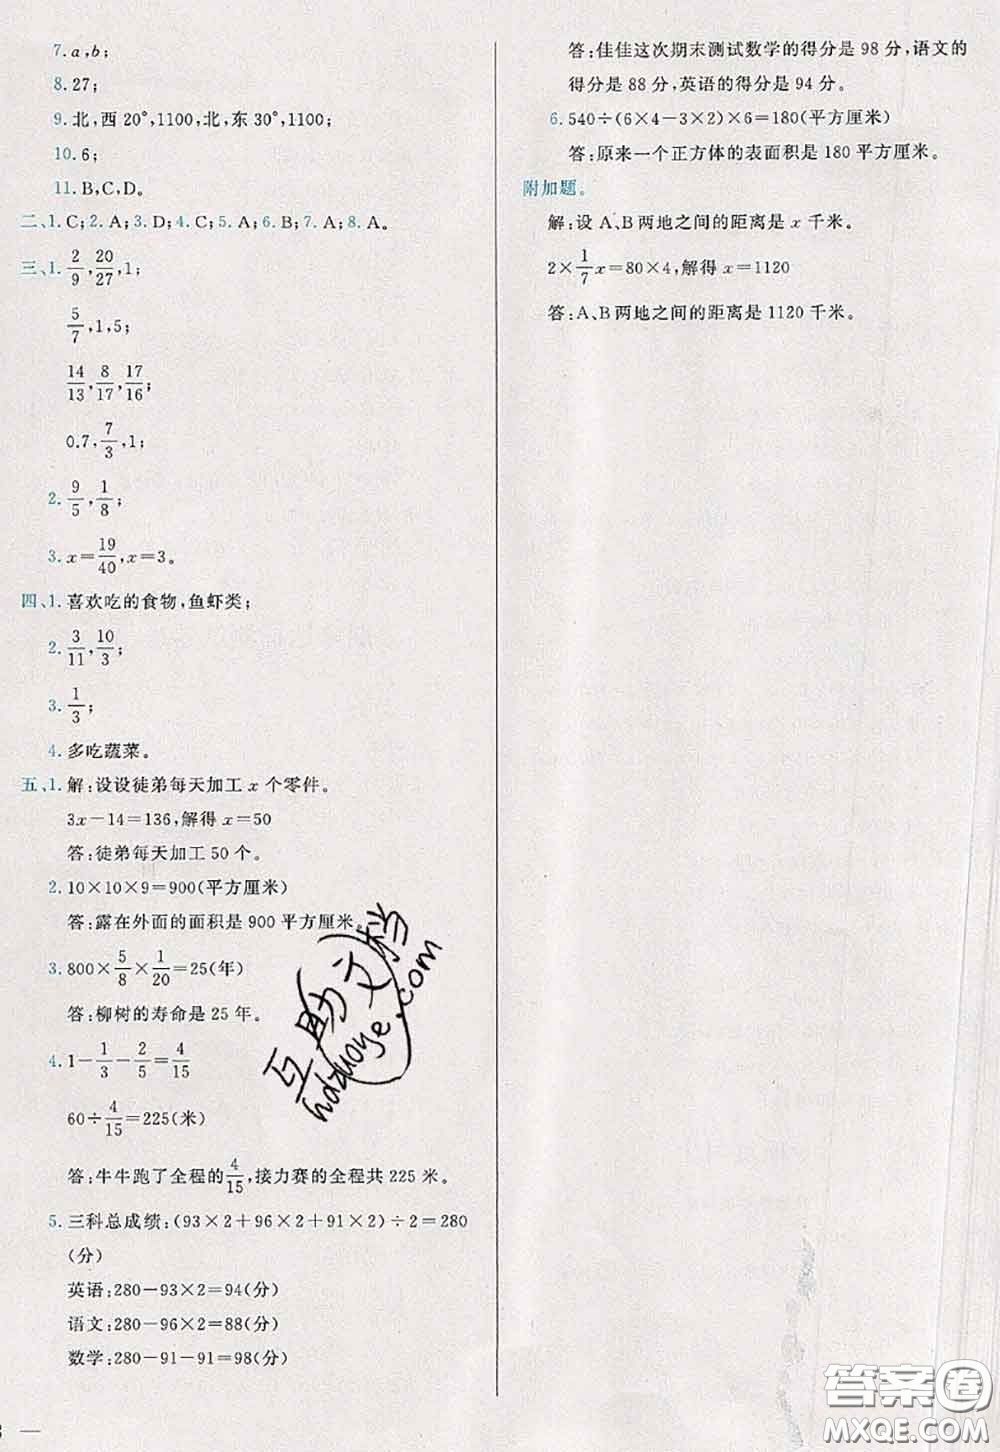 7. a,b;
8. 27;
9. 北,西20°,1100,北,东30°,1100;
10. 6;
11. B,C,D。
二、1. C;2. A;3. D;4. C;5. A;6. B;7. A;8. A。
三、1. 2/9,20/27,1;
5/7,1,5;
14/13,8/17,17/16;
0.7,7/3,1;
2. 9/5,1/8;
3. x=19/40,x=3。
四、1. 喜欢吃的食物,鱼虾类;
2. 3/11,10/3;
3. 1/3;
4. 多吃蔬菜。
五、1. 解:设设徒弟每天加工 x 个零件。
3x-14=136,解得 x=50
答:徒弟每天加工 50 个。
2. 10×10×9=900(平方厘米)
答:露在外面的面积是 900 平方厘米。
3. 800×5/8×1/20=25(年)
答:柳树的寿命是 25 年。
4. 1-1/3-2/5=4/15
60÷4/15=225(米)
答:牛牛跑了全程的4/15,接力赛的全程共 225 米。
5. 三科总成绩:(93×2+96×2+91×2)÷2=280
(分)
英语:280-93×2=94(分)
语文:280-96×2=88(分)
数学:280-91-91=98(分)
答:佳佳这次期末测试数学的得分是 98 分,语文的
得分是 88 分,英语的得分是 94 分。
6. 540÷(6×4-3×2)×6=180(平方厘米)
答:原来一个正方体的表面积是 180 平方厘米。
附加题。
解:设 A、B 两地之间的距离是 x 千米。
2×1/7x=80×4,解得 x=1120
答:A、B 两地之间的距离是 1120 千米。
互助文档
hdzuoye.com
答案圈
MXQE.COM